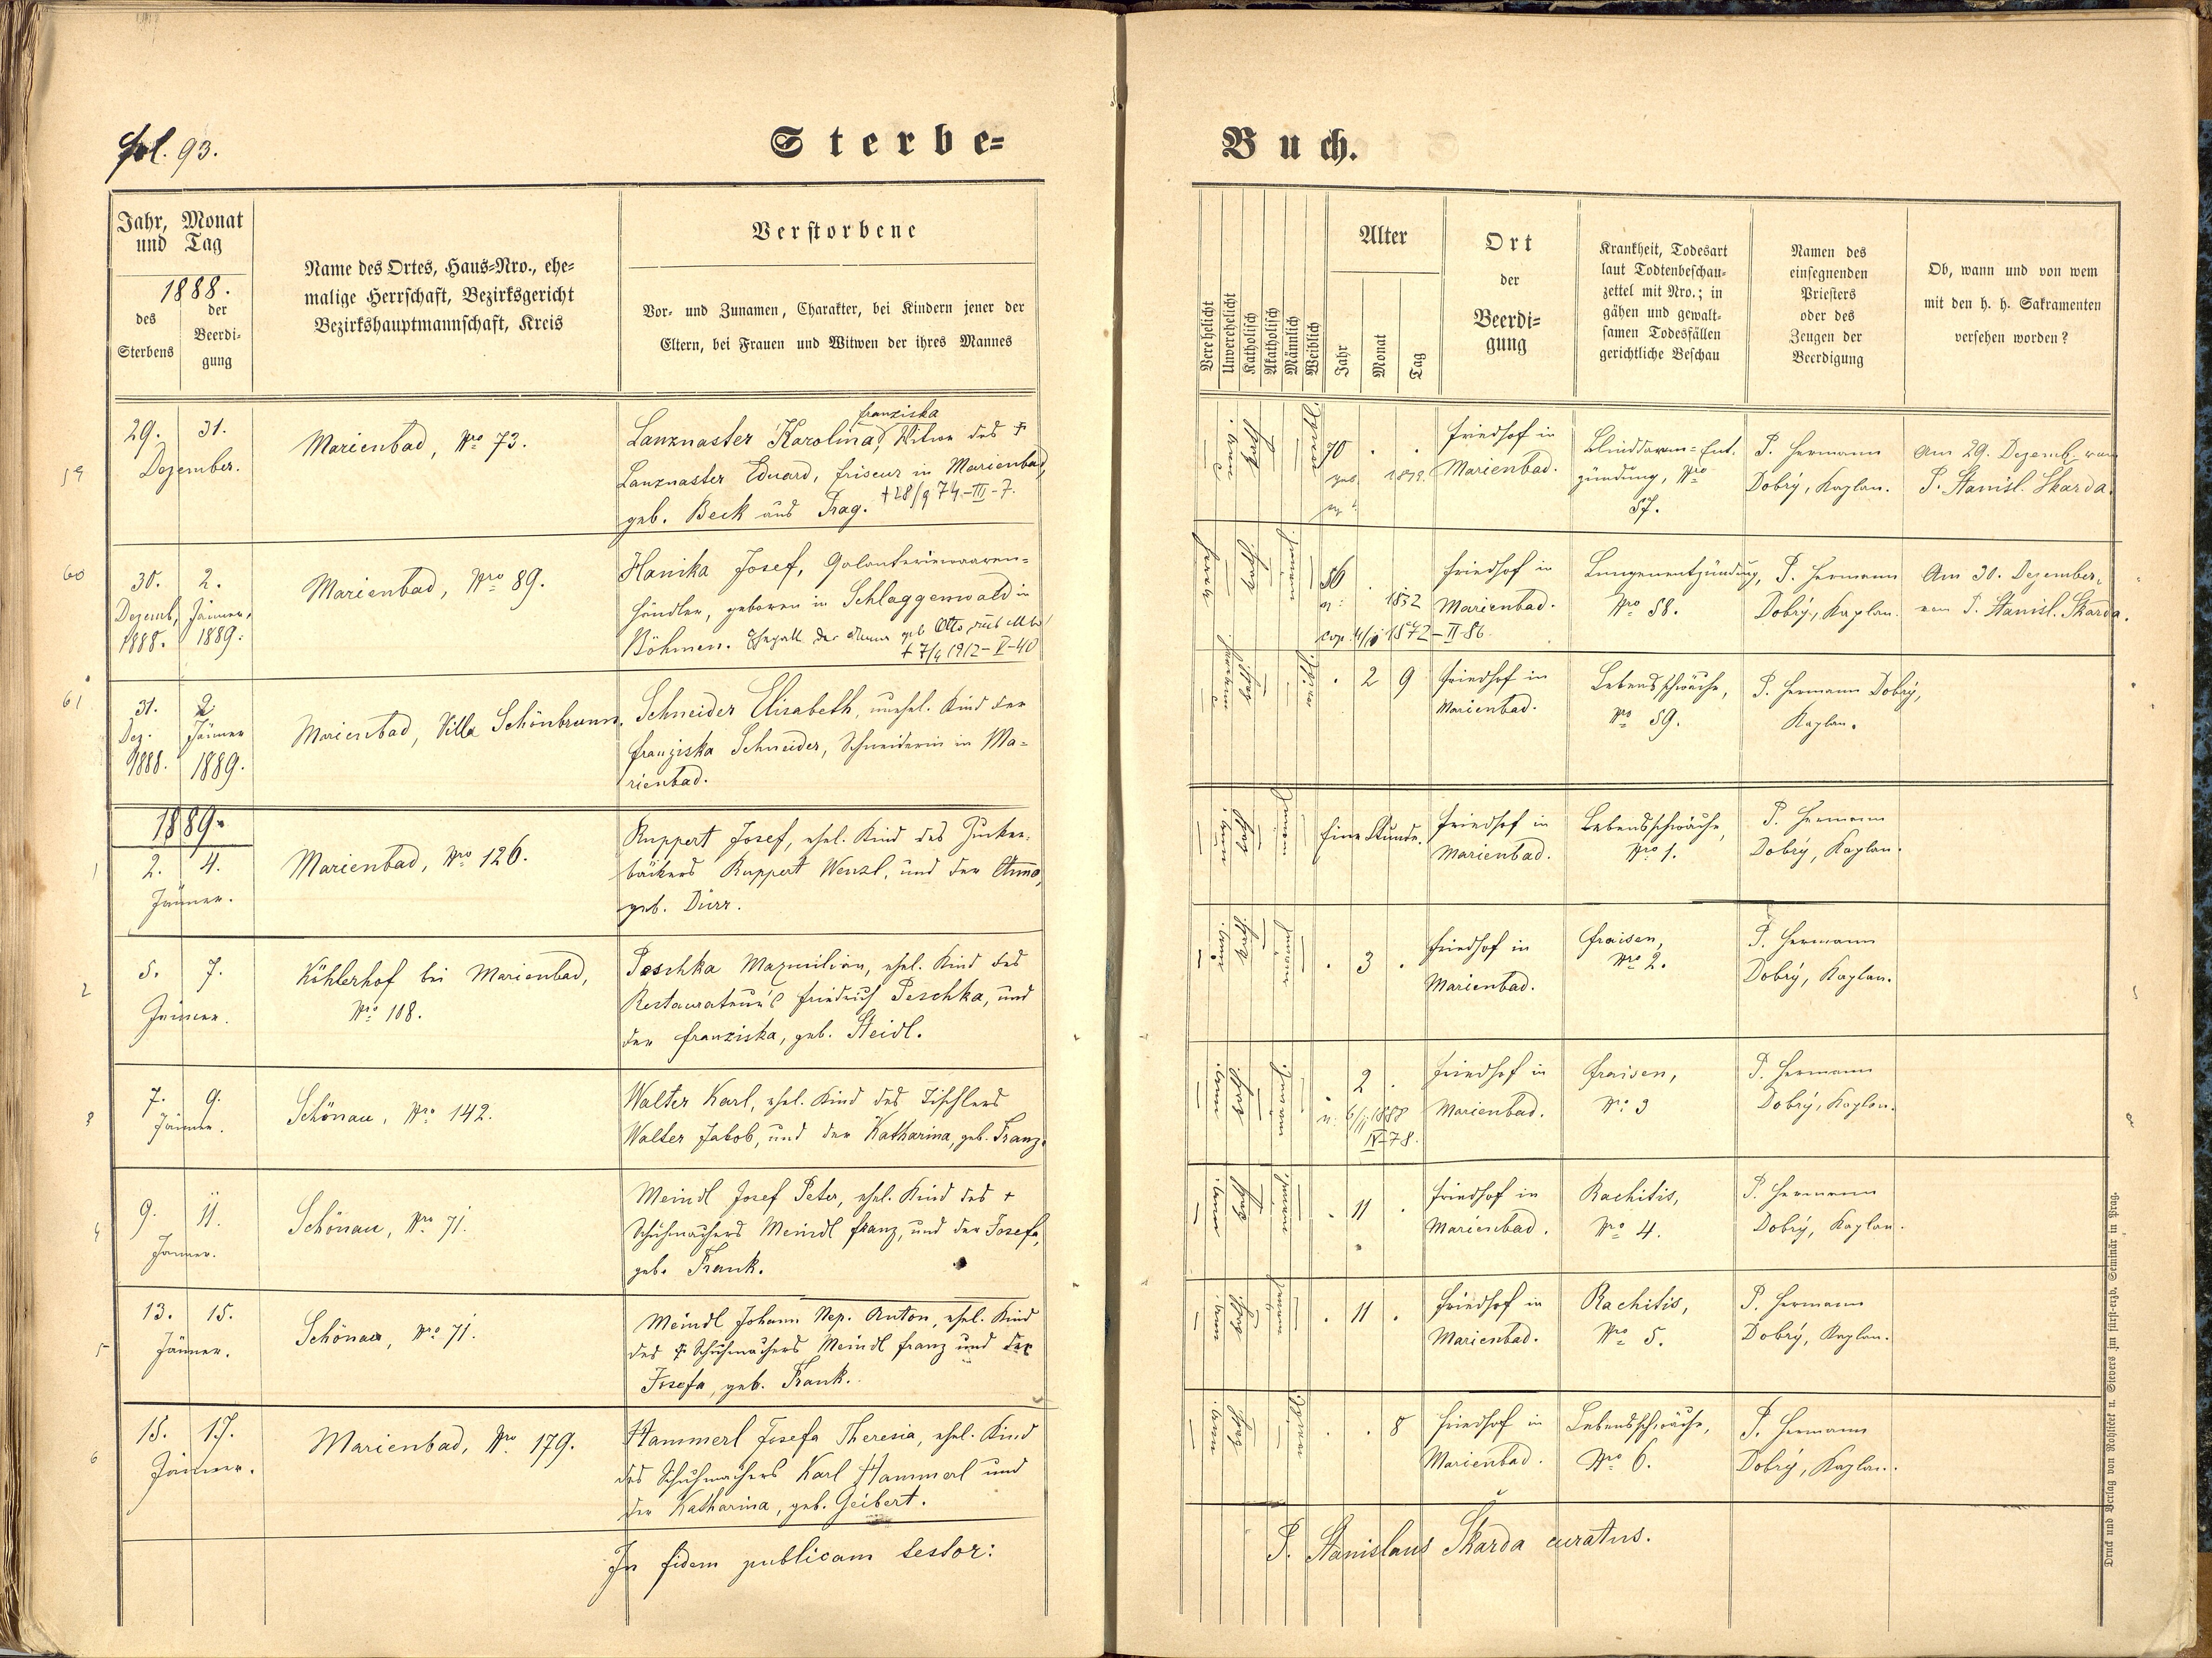 fol. 93.
Sterbe-
Buch.
Jahr, Monat
und Tag
1888.
des
Sterbens
der
Beerdi-
gung
Name des Ortes, Haus-Nro., ehe-
malige Herrschaft, Bezirksgericht
Bezirkshauptmannschaft, Kreis
Verstorbene
Vor- und Zunamen, Charakter, bei Kindern jener der
Eltern, bei Frauen und Witwen der ihres Mannes
Verehelicht
Unverehelicht
Katholisch
Akatholisch
Männlich
Weiblich
Alter
Jahr
Monat
Tag
Ort
der
Beerdi-
gung
Krankheit, Todesart
laut Todtenbeschau-
zettel mit Nro.; in
gähen und gewalt-
samen Todesfällen
gerichtliche Beschau
Namen des
einsegnenden
Priesters
oder des
Zeugen der
Beerdigung
Ob, wann und von wem
mit den h. h. Sakramenten
versehen worden?
59
29. 31.
Dezember.
Marienbad, Nro 73.
Franziska
Lanznaster Karolina, Witwe des †
Lanznaster Eduard, Friseur in Marienbad,
geb. Beck aus Prag. † 28/9 74.-III-7.
70 . .
Friedhof in
Marienbad.
Blinddarm-Ent-
zündung, Nro
57.
P. Hermann
Dobrý, Kaplan.
Am 29. Dezemb. von
P. Stanisl. Skarda.
60
30. 2.
Dezemb. Jänner,
1888. 1889.
Marienbad, Nro 89.
Hanika Josef, Galanteriewaaren-
händler, geboren in Schlaggenwald in
Böhmen. Ehegatt. der Anna geb. Otto
† 7/4 1912-V-40
56 .
n: 1832
cop. 1872-II-86.
Friedhof in
Marienbad.
Lungenentzündung,
Nro 58.
P. Hermann
Dobrý, Kaplan.
Am 30. Dezember,
von P. Stanisl. Skarda.
61
31. 2
Dez. Jänner
1888. 1889.
Marienbad, Villa Schönbrunn.
Schneider Elisabeth, unehel. Kind der
Franziska Schneider, Schneiderin in Ma-
rienbad.
. 2 9
Friedhof in
Marienbad.
Lebensschwäche,
Nro 59.
P. Hermann Dobrý,
Kaplan.
1889.
1
2. 4.
Jänner.
Marienbad, Nro 126.
Ruppert Josef, ehel. Kind des Zucker-
bäckers Ruppert Wenzl, und der Anna,
geb. Dürr.
Eine Stunde.
Friedhof in
Marienbad.
Lebensschwäche,
Nro 1.
P. Hermann
Dobrý, Kaplan.
2
5. 7.
Jänner.
Köhlerhof bei Marienbad,
Nro 108.
Peschka Maximilian, ehel. Kind des
Restaurateur's Friedrich Peschka, und
der Franziska, geb. Steidl.
. 3 .
Friedhof in
Marienbad.
Fraisen,
Nro 2.
P. Hermann
Dobrý, Kaplan.
3
7. 9.
Jänner.
Schönau, Nro 142.
Walter Karl, ehel. Kind des Tischlers
Walter Jakob, und der Katharina, geb. Franz.
. 2 .
n: 6/11 1888
IV-78.
Friedhof in
Marienbad.
Fraisen,
Nro 3
P. Hermann
Dobrý, Kaplan.
4
9. 11.
Jänner.
Schönau, Nro 71.
Meindl Josef Peter, ehel. Kind des †
Schuhmachers Meindl Franz, und der Josefa,
geb. Frank.
. 11 .
Friedhof in
Marienbad.
Rachitis,
Nro 4.
P. Hermann
Dobrý, Kaplan.
5
13. 15.
Jänner.
Schönau, Nro 71.
Meindl Johann Nep. Anton, ehel. Kind
des † Schuhmachers Meindl Franz und der
Josefa, geb. Frank.
. 11 .
Friedhof in
Marienbad.
Rachitis,
Nro 5.
P. Hermann
Dobrý, Kaplan.
6
15. 17.
Jänner.
Marienbad, Nro 179.
Hammerl Josefa Theresia, ehel. Kind
des Schuhmachers Karl Hammerl und
der Katharina, geb. Geibert.
. . 8
Friedhof in
Marienbad.
Lebensschwäche,
Nro 6.
P. Hermann
Dobrý, Kaplan.
In fidem publicam testor:
P. Stanislaus Skarda curatus.
Druck und Verlag von Rohliček u. Sievers im fürst-erzb. Seminär in Prag.